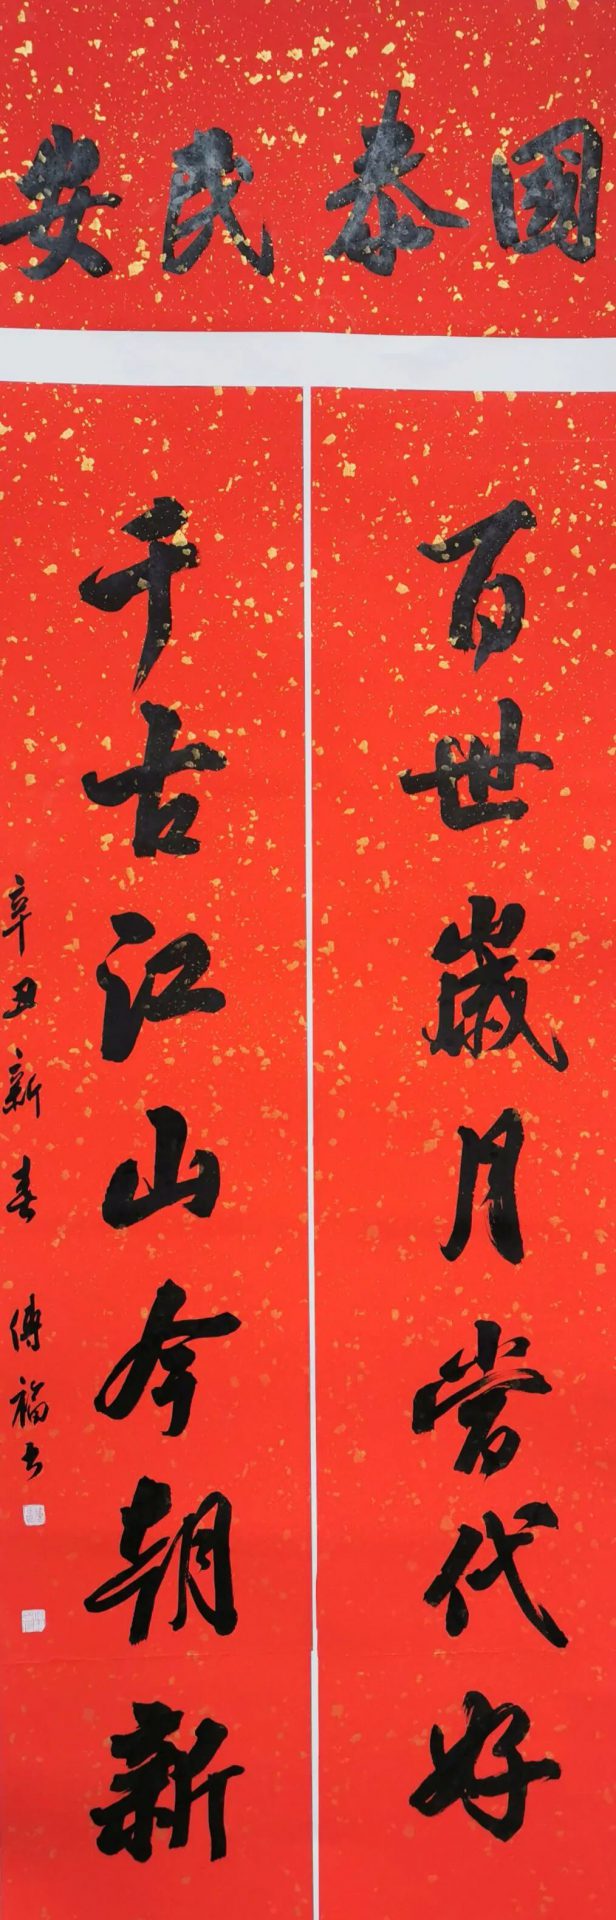 國泰民安
百世歲月當代好
千古江山今朝新
辛丑新春 傅福士